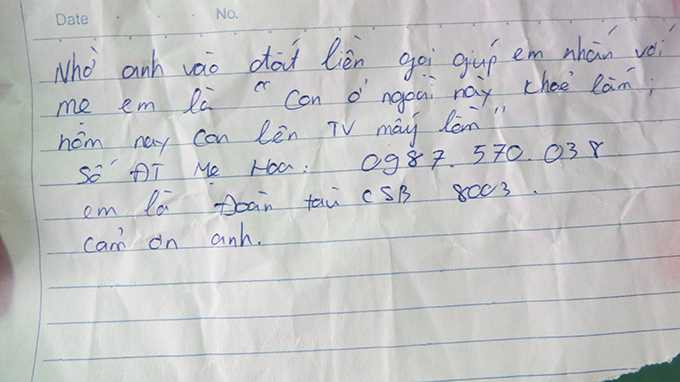 Date No.
Nhờ anh vào đất liền gọi giúp em nhắn với
mẹ em là "Con ở ngoài này khoẻ lắm,
hôm nay con lên TV mấy lần"
Số ĐT Mẹ Hoa: 0987.570.038
em là Đoàn tàu CSB 8003.
cảm ơn anh.